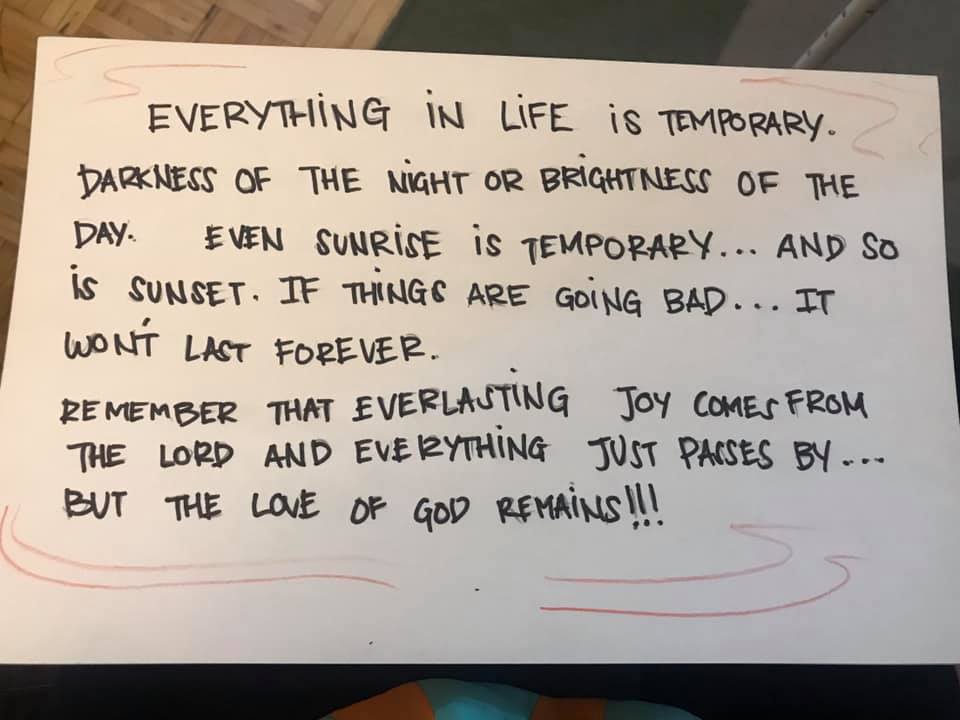 EVERYTHING IN LIFE IS TEMPORARY.
DARKNESS OF THE NIGHT OR BRIGHTNESS OF THE
DAY. EVEN SUNRISE IS TEMPORARY... AND SO
IS SUNSET. IF THINGS ARE GOING BAD... IT
WON'T LAST FOREVER.
REMEMBER THAT EVERLASTING JOY COMES FROM
THE LORD AND EVERYTHING JUST PASSES BY...
BUT THE LOVE OF GOD REMAINS!!!